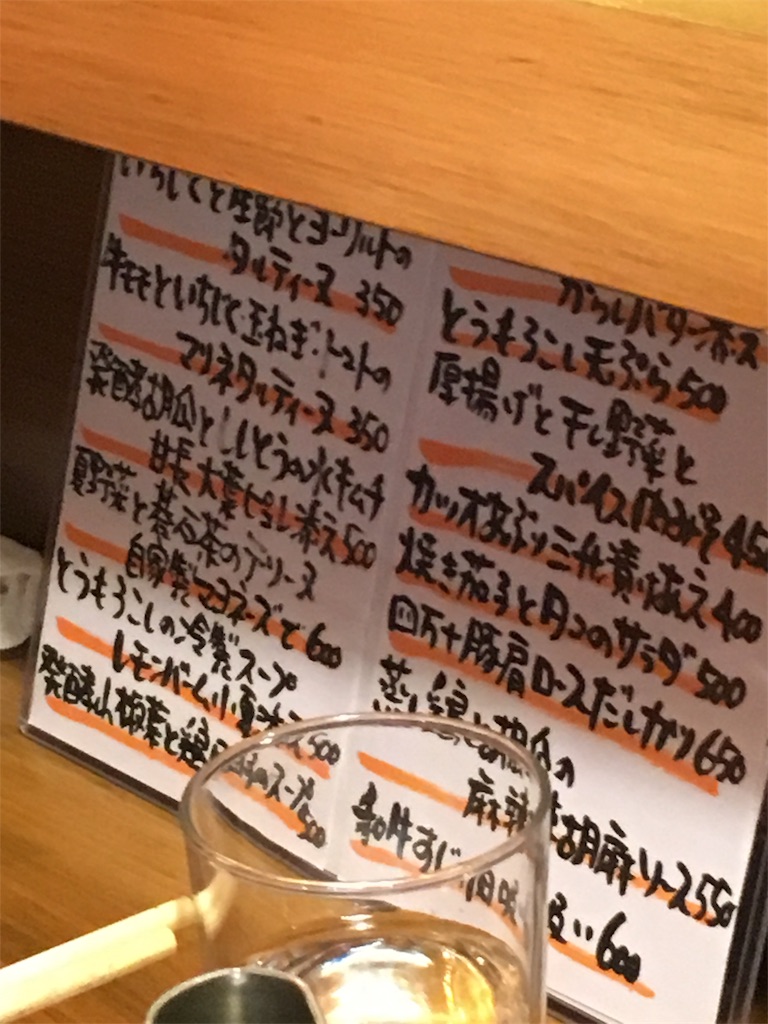 いちじくと生節とヨーグルトの
タルティーヌ 350
牛モモといちじく・玉ねぎ・トマトの
マリネタルティーヌ 350
発酵胡瓜としししとうの水キムチ
甘長大葉ピュレ添え 500
夏野菜と碁石茶のテリーヌ
自家製マヨネーズで 600
とうもろこしの冷製スープ
レモンバーム小夏 500
発酵山椒菜と鶏のスープ
500
からしバター添え
とうもろこし天ぷら 500
厚揚げと干し野菜と
スパイス肉みそ 450
カツオあぶり三升漬けあえ 400
焼き茄子とタコのサラダ 500
四万十豚肩ロースだしがけ 650
蒸し鶏と胡瓜の
麻辣胡麻ソース 550
牛すじ 600